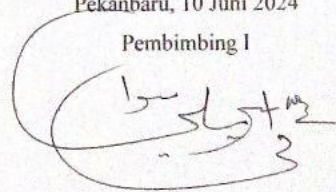 Pekanbaru, 10 Juni 2024
Pembimbing I